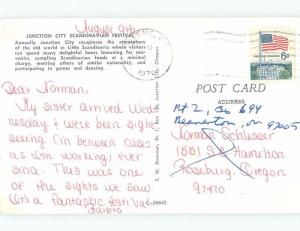 August 9th
JUNCTION CITY SCANDINAVIAN FESTIVAL
Annually Junction City recaptures the atmosphere
of the old world in Little Scandinavia where visitors
can spend many delightful hours browsing for sou-
venirs, sampling Scandinavian foods at a minimal
charge, meeting others of similar nationality, and
participating in games and dancing.
Dear Norman,
My sister arrived Wed
nesday & we've been sight
seeing in between cases
as I'm working, ever
since. This was one
of the sights we saw
With a fantastic festival
Barbra
C-26640
6c
POST CARD
ADDRESS
Rt 2, Bx 694
Beaverton, OR 97005
Norman Schlesser
1861 SE Hamilton
Roseburg, Oregon
97470